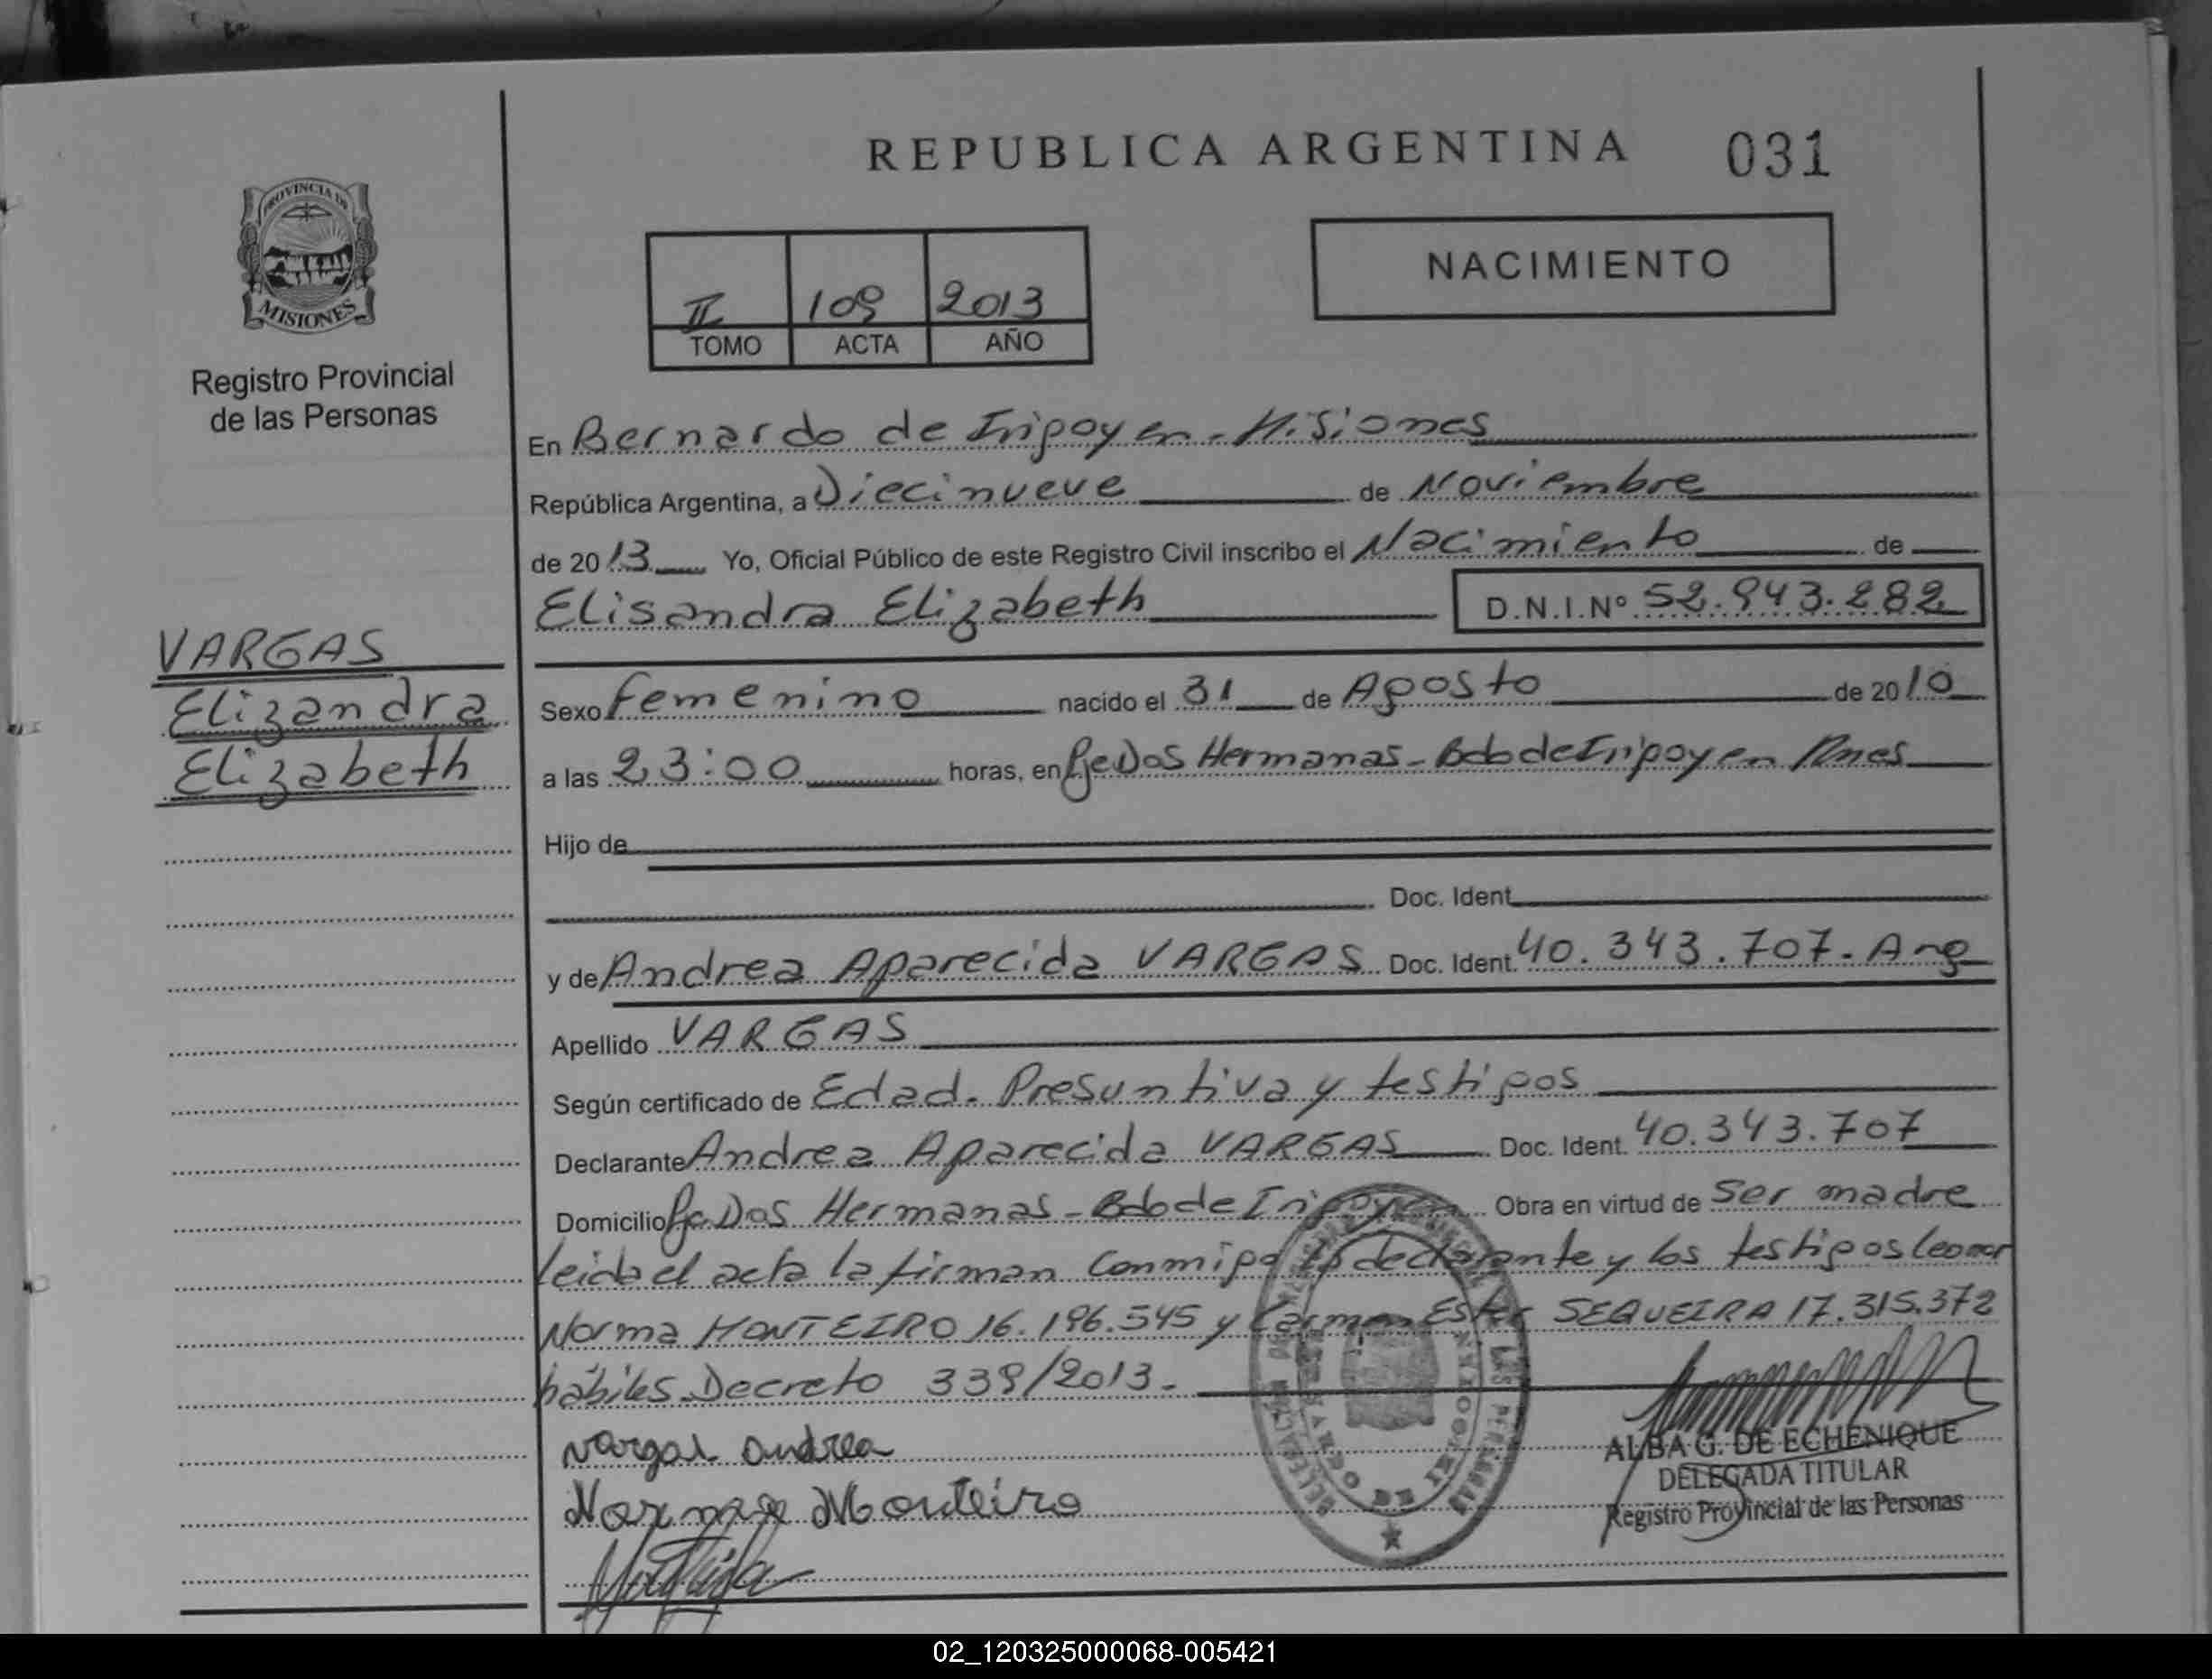 REPUBLICA ARGENTINA 031
PROVINCIA DE
MISIONES
Registro Provincial
de las Personas
NACIMIENTO
II 109 2013
TOMO ACTA AÑO
En Bernardo de Irigoyen - Misiones
República Argentina, a Diecinueve de Noviembre
de 2013 Yo, Oficial Público de este Registro Civil inscribo el Nacimiento de
Elisandra Elizabeth D.N.I.Nº 52.943.282
VARGAS
Elizandra
Elizabeth
Sexo Femenino nacido el 31 de Agosto de 2010
a las 23:00 horas, en Pje Dos Hermanas - Bdo de Irigoyen Mnes
Hijo de
Doc. Ident.
y de Andrea Aparecida VARGAS Doc. Ident. 40.343.707 - Arg
Apellido VARGAS
Según certificado de Edad. Presuntiva y testigos
Declarante Andrea Aparecida VARGAS Doc. Ident. 40.343.707
Domicilio Pje Dos Hermanas - Bdo de Irigoyen Obra en virtud de Ser madre
leida el acta la firman conmigo la declarante y los testigos Leonor
Norma MONTEIRO 16.196.545 y Carmen Ester SEQUEIRA 17.315.372
hábiles Decreto 339/2013.-
Vargas andrea
Norma Monteiro
ALBA G. DE ECHENIQUE
DELEGADA TITULAR
Registro Provincial de las Personas
02_120325000068-005421